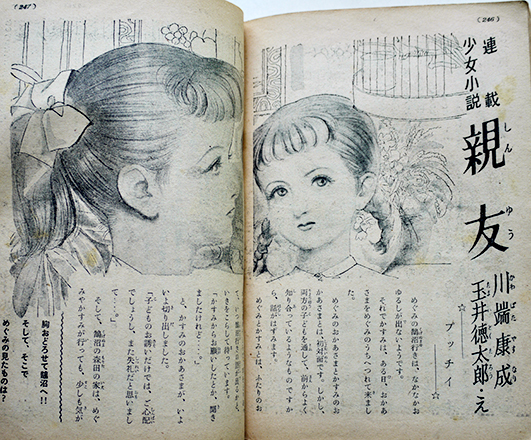 (246)
連載
少女小説
親友
しんゆう
川端康成
かわばたやすなり
玉井徳太郎・え
☆
プッチィ
☆
めぐみの鵠沼行きは、なかなかお
ゆるしが出ないようです。
それでかすみは、ある日、おかあ
さまをめぐみのうちへつれて来まし
た。
めぐみのおかあさまとかすみのお
かあさまは、初対面ですし、しかし
両方の子どもを通して、前からよく
知り合っているようなもので
ら、話がはずみます。
めぐみとかすみとは、ふたりのお
(247)
いきをころして待っています。
「かすみからお願いしたとか、聞き
ましたけれど……。」
と、かすみのおかあさまが、いよ
いよ切り出しました。
「子どものお誘いだけでは、ご心配
でしょうし、また失礼だと思いまし
て……。」
そして、鵠沼の森田の家は、めぐ
みやかすみが行っても、少しも気が
胸おどろせて鵠沼へ!!
そして、そこで
めぐみの見たものは?